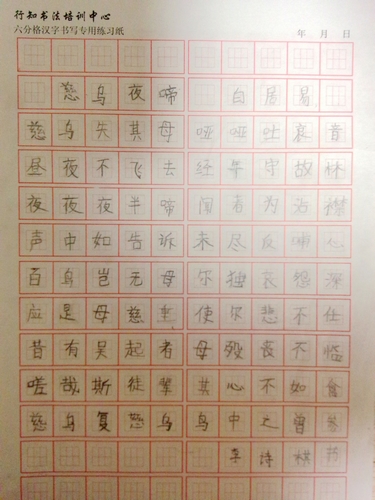 行知书法培训中心
六分格汉字书写专用练习纸 年 月 日
慈乌夜啼 白居易
慈乌失其母 哑哑吐哀音
昼夜不飞去 经年守故林
夜夜夜半啼 闻者为沾襟
声中如告诉 未尽反哺心
百鸟岂无母 尔独哀怨深
应是母慈重 使尔悲不任
昔有吴起者 母殁丧不临
嗟哉斯徒辈 其心不如禽
慈乌复慈乌 鸟中之曾参
李诗棋